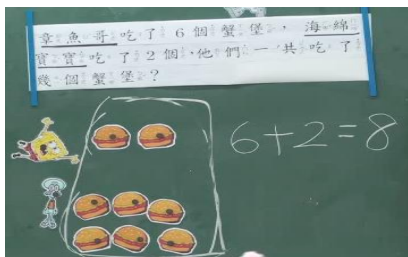 章魚哥吃了6個蟹堡，海綿
寶寶吃了2個，他們一共吃了
幾個蟹堡？
6+2=8